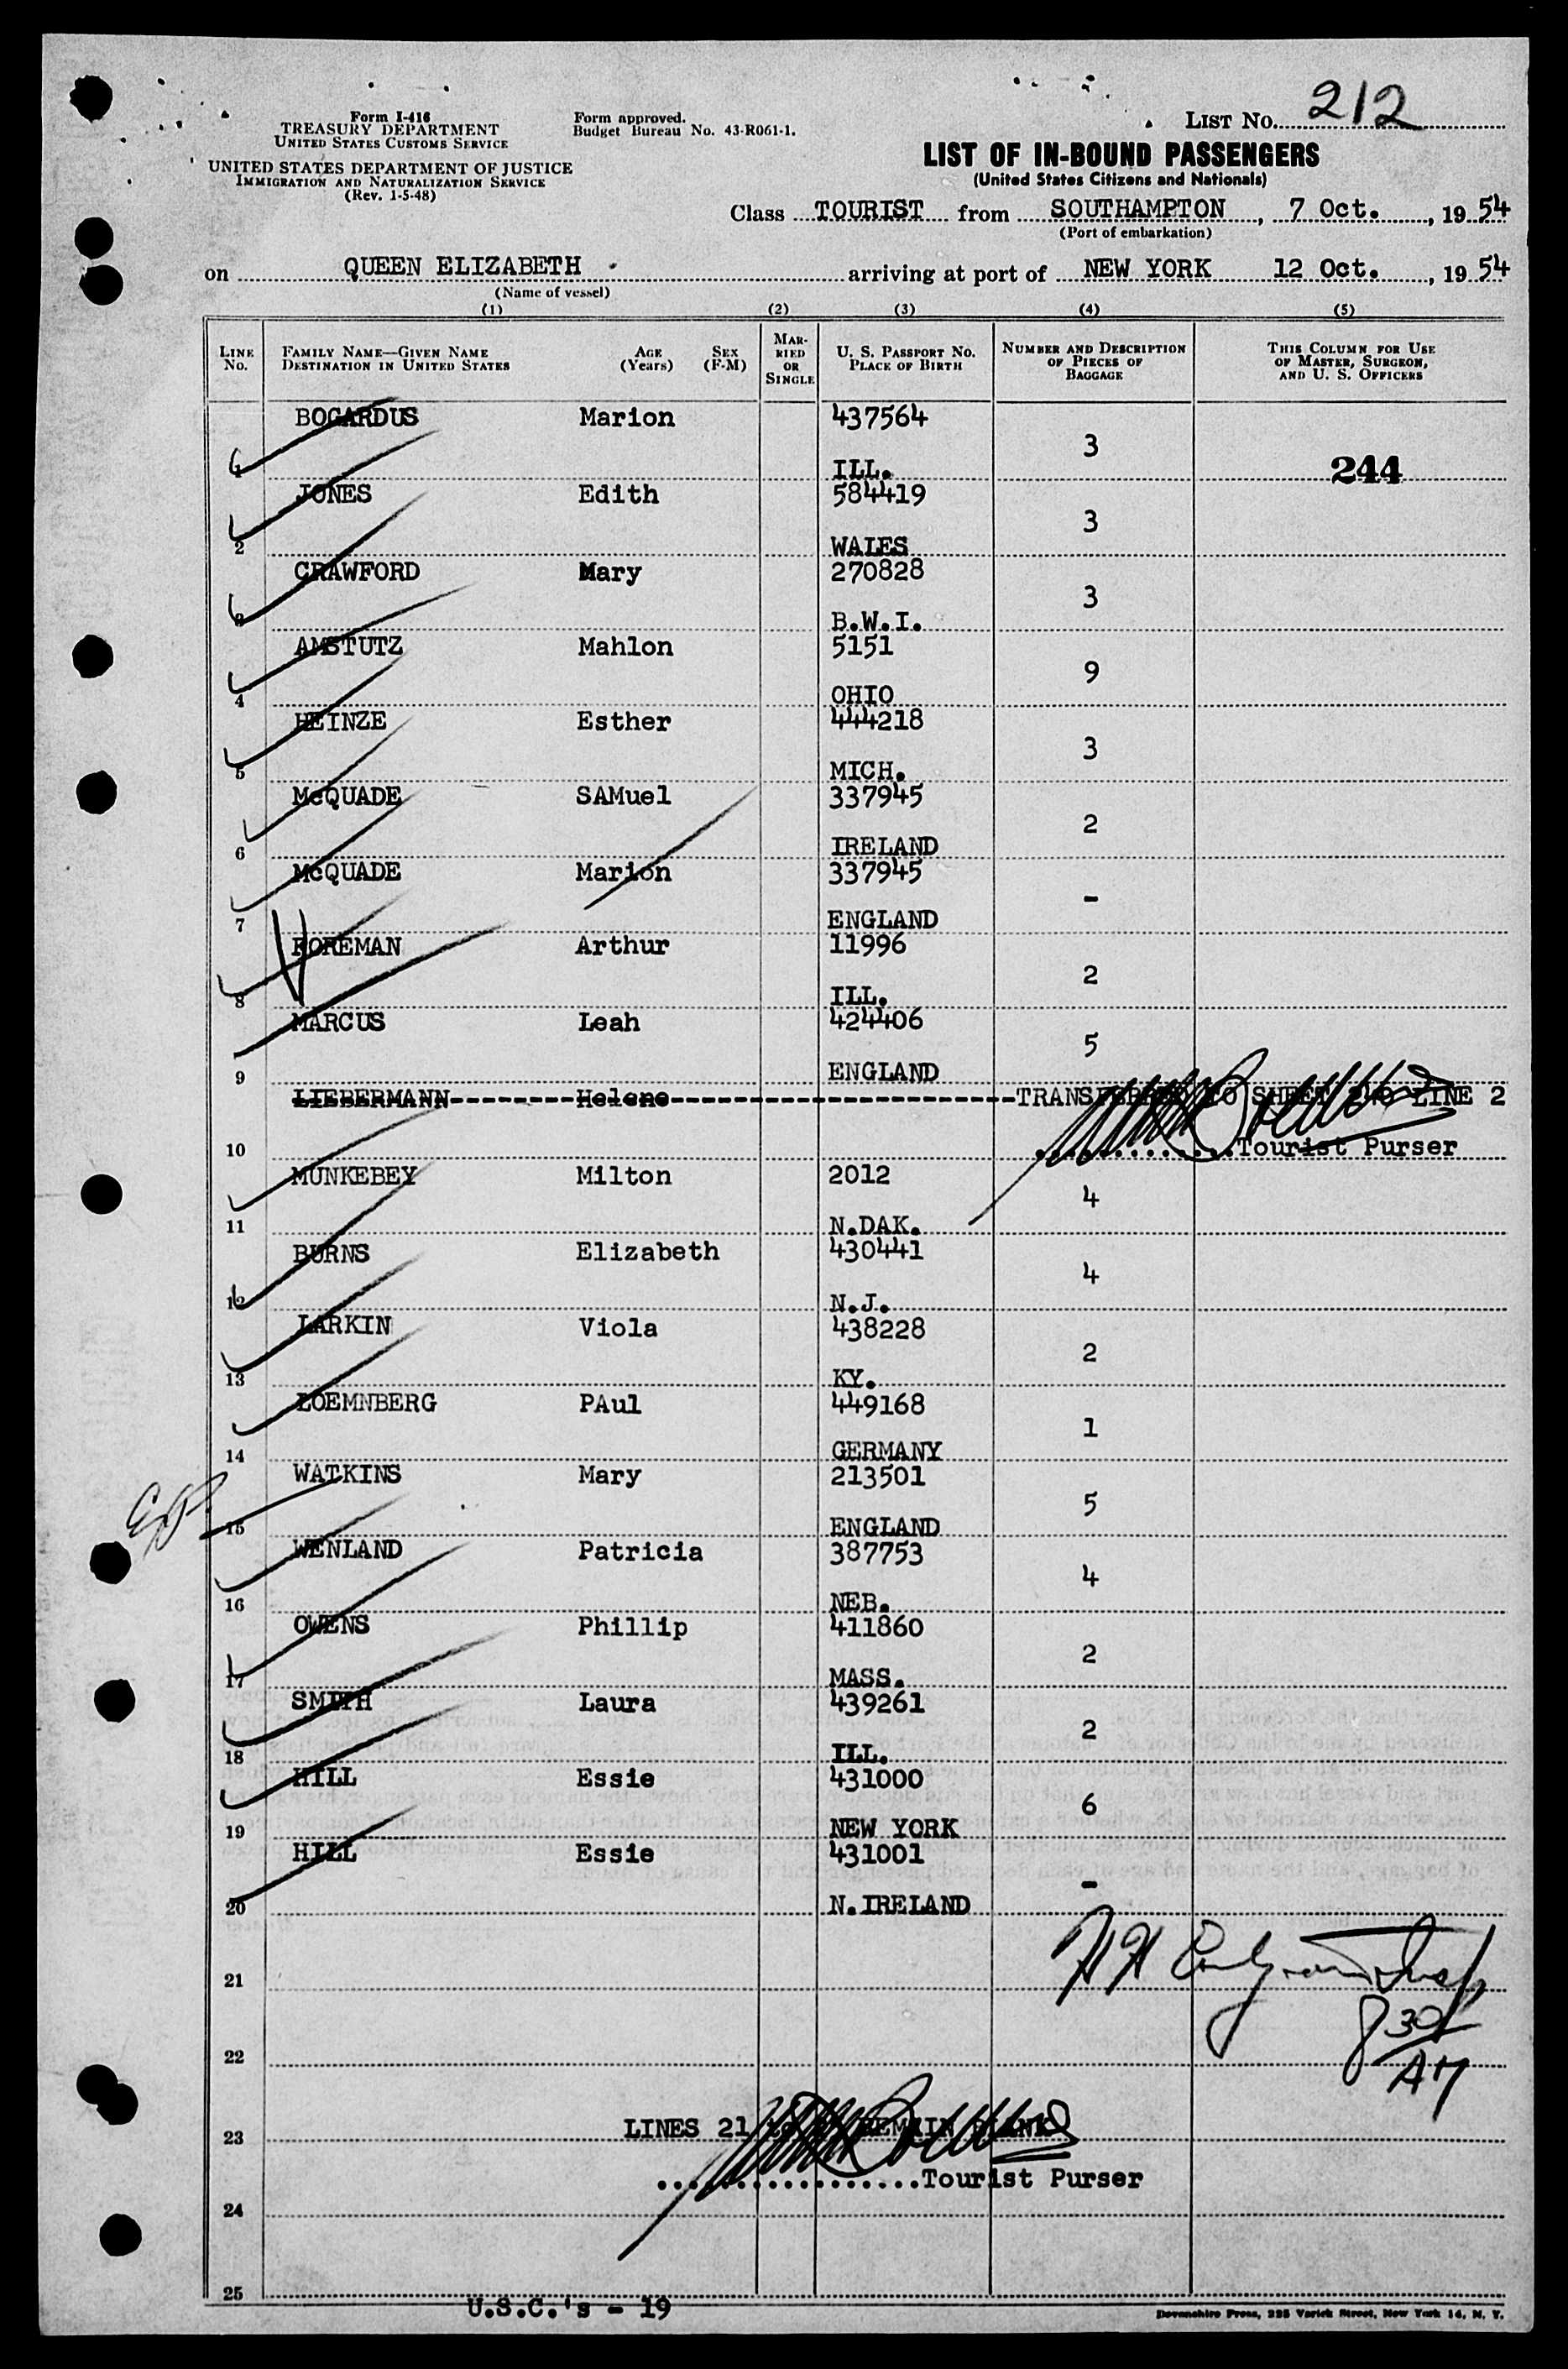 Form I-416
TREASURY DEPARTMENT
UNITED STATES CUSTOMS SERVICE
UNITED STATES DEPARTMENT OF JUSTICE
IMMIGRATION AND NATURALIZATION SERVICE
(Rev. 1-5-48)
Form approved.
Budget Bureau No. 43-R061-1.
LIST NO. 212
LIST OF IN-BOUND PASSENGERS
(United States Citizens and Nationals)
Class TOURIST from SOUTHAMPTON, 7 Oct., 1954
(Port of embarkation)
on QUEEN ELIZABETH arriving at port of NEW YORK 12 Oct., 1954
(Name of vessel)
(1) (2) (3) (4) (5)
LINE NO. FAMILY NAME—GIVEN NAME DESTINATION IN UNITED STATES AGE (Years) SEX (F-M) MARRIED OR SINGLE U. S. PASSPORT NO. PLACE OF BIRTH NUMBER AND DESCRIPTION OF PIECES OF BAGGAGE THIS COLUMN FOR USE OF MASTER, SURGEON, AND U. S. OFFICERS
BOGARDUS Marion 437564
3
1 ILL. 244
JONES Edith 584419
3
2 WALES
CRAWFORD Mary 270828
3
3 B.W.I.
AMSTUTZ Mahlon 5151
9
4 OHIO
HEINZE Esther 444218
3
5 MICH.
McQUADE SAMuel 337945
2
6 IRELAND
McQUADE Marion 337945
-
7 ENGLAND
FOREMAN Arthur 11996
2
8 ILL.
MARCUS Leah 424406
5
9 ENGLAND
LIEBERMANN Helene TRANSFERRED TO SHEET LINE 2
10 Tourist Purser
MUNKEBEY Milton 2012
4
11 N.DAK.
BURNS Elizabeth 430441
4
12 N.J.
LARKIN Viola 438228
2
13 KY.
LOEMNBERG PAul 449168
1
14 GERMANY
WATKINS Mary 213501
5
15 ENGLAND
WENLAND Patricia 387753
4
16 NEB.
OWENS Phillip 411860
2
17 MASS.
SMITH Laura 439261
2
18 ILL.
HILL Essie 431000
6
19 NEW YORK
HILL Essie 431001
-
20 N.IRELAND
21
830
AM
22
LINES 21 REMAIN BLANK
23
Tourist Purser
24
25
U.S.C.'s - 19
Devonshire Press, 225 Varick Street, New York 14, N. Y.